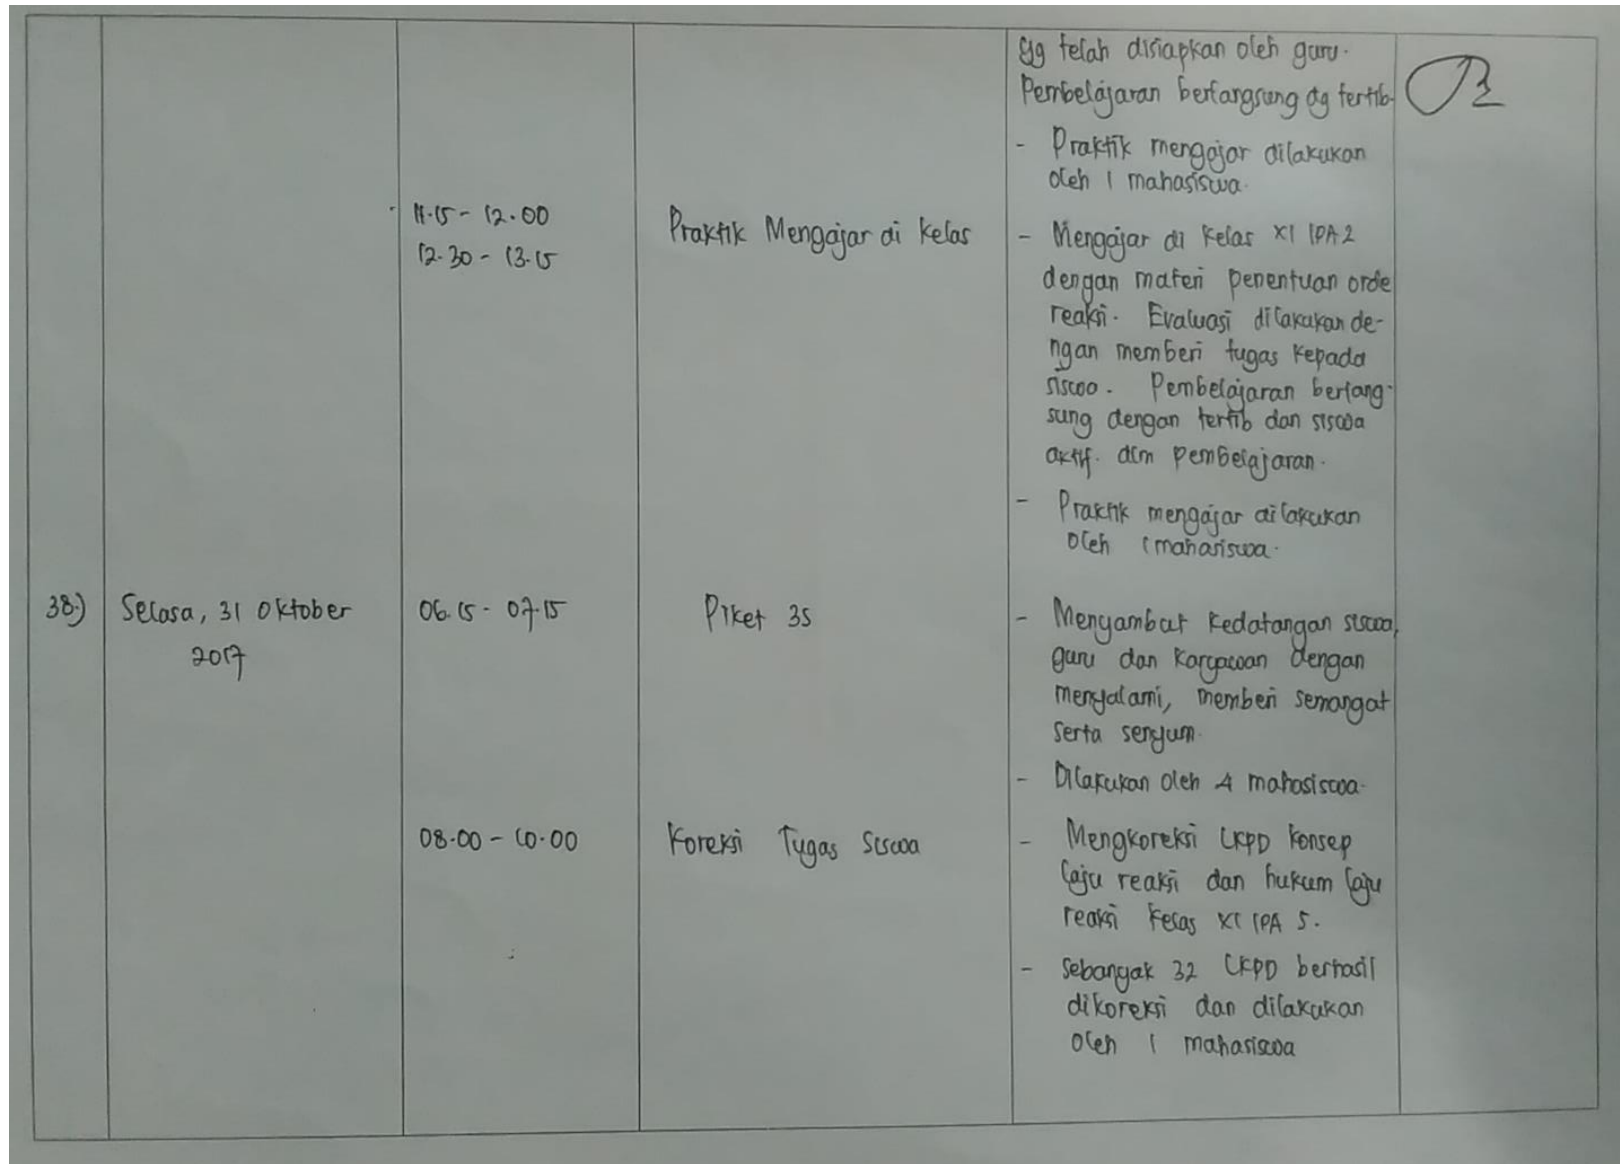 yg telah disiapkan oleh guru.
Pembelajaran berlangsung dg tertib.
- Praktik mengajar dilakukan
oleh 1 mahasiswa.
11.15 - 12.00
12.30 - 13.15
Praktik Mengajar di Kelas
- Mengajar di Kelas XI IPA 2
dengan materi penentuan orde
reaksi. Evaluasi dilakukan de-
ngan memberi tugas kepada
siswa. Pembelajaran berlang-
sung dengan tertib dan siswa
aktif. dlm pembelajaran.
- Praktik mengajar dilakukan
oleh 1 mahasiswa.
38.) Selasa, 31 Oktober
2017
06.15 - 07.15
Piket 3S
- Menyambut kedatangan siswa,
guru dan karyawan dengan
menyalami, memberi semangat
serta senyum.
- Dilakukan oleh 4 mahasiswa.
08.00 - 10.00
Koreksi Tugas Siswa
- Mengkoreksi LKPD Konsep
laju reaksi dan hukum laju
reaksi kelas XI IPA 5.
- Sebanyak 32 LKPD berhasil
dikoreksi dan dilakukan
oleh 1 mahasiswa